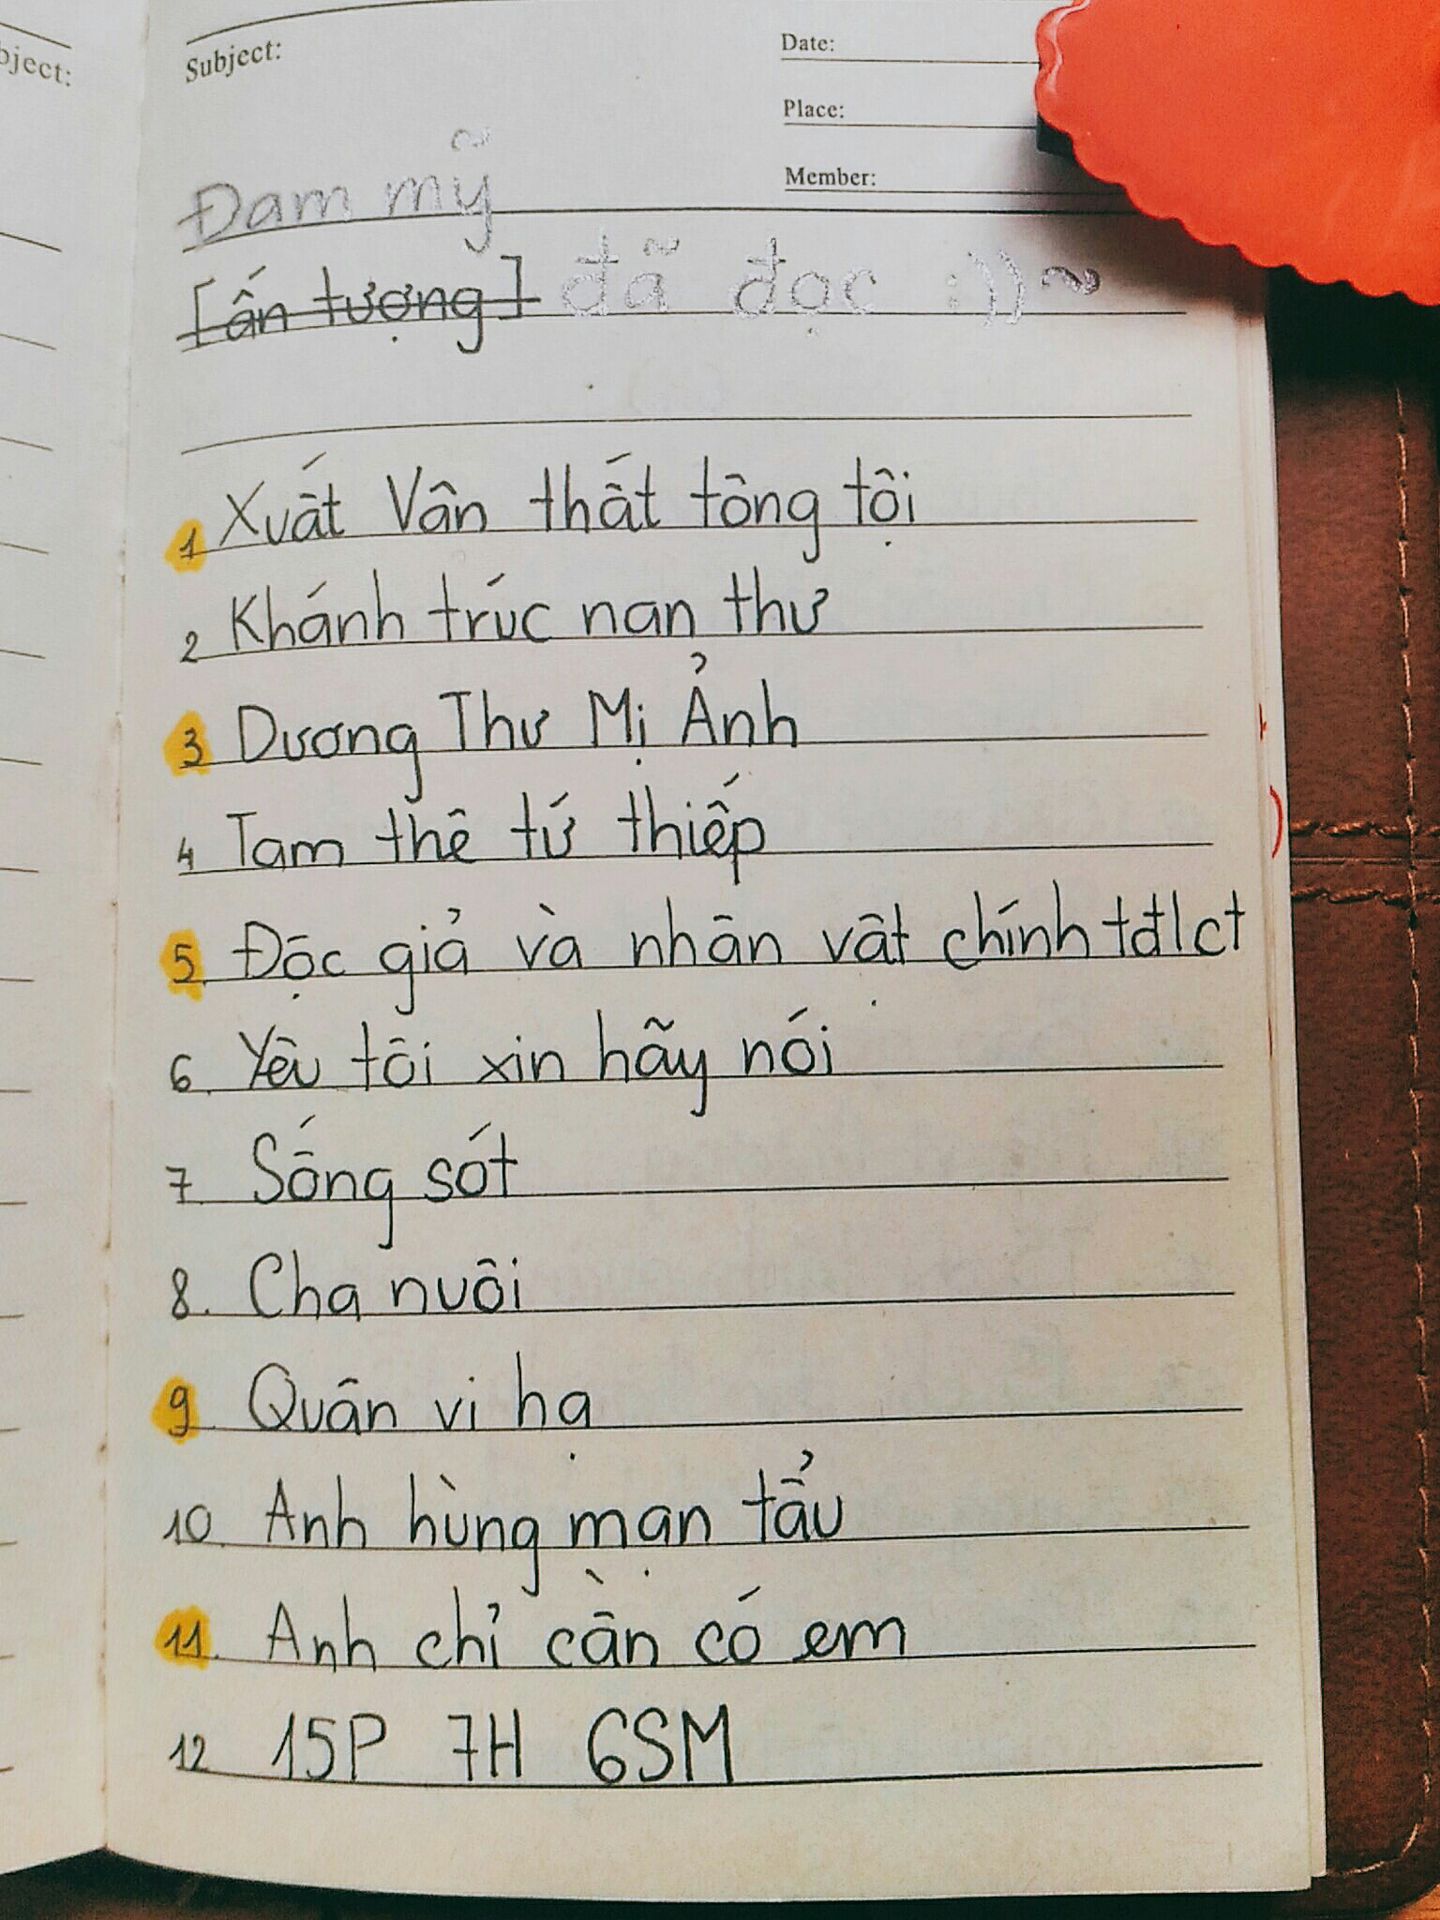 bject:
Subject:
Date:
Place:
Member:
Đam mỹ
[ấn tượng] đã đọc :))~
1 Xuất Vân thất tông tội
2 Khánh trúc nan thư
3 Dương Thư Mị Ảnh
4 Tam thê tứ thiếp
5. Độc giả và nhân vật chính tđlct
6. Yêu tôi xin hãy nói
7. Sống sót
8. Cha nuôi
9. Quân vi hạ
10. Anh hùng mạn tẩu
11. Anh chỉ cần có em
12 15P 7H 6SM